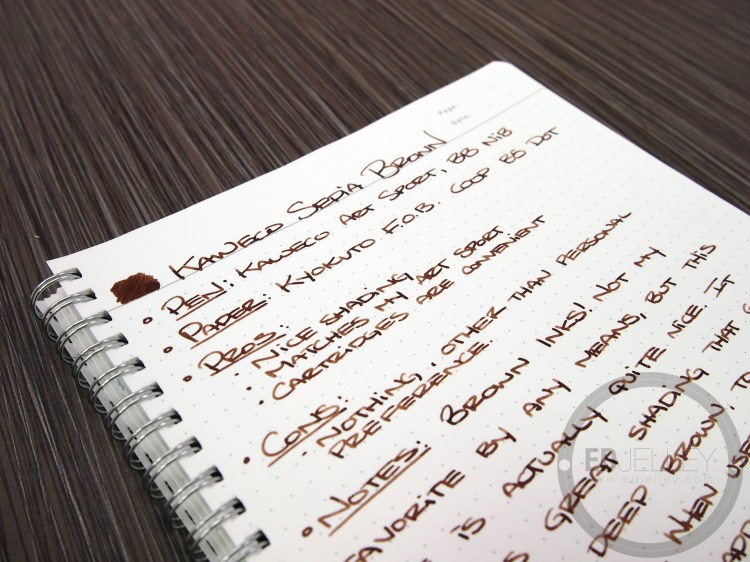 Page:
Date:
KAWECO SEPIA BROWN
• PEN: KAWECO ART SPORT, BB NIB
• PAPER: KYOKUTO F.O.B. COOP B5 DOT
• PROS:
• NICE SHADING
• MATCHES MY ART SPORT
• CARTRIDGES ARE CONVENIENT
• CONS:
• NOTHING, OTHER THAN PERSONAL
PREFERENCE.
• NOTES: BROWN INKS! NOT MY
FAVORITE BY ANY MEANS, BUT THIS
IS ACTUALLY QUITE NICE. IT
GREAT SHADING THAT
DEEP BROWN,
WHEN
EDJELLEY
www.edjelley.com